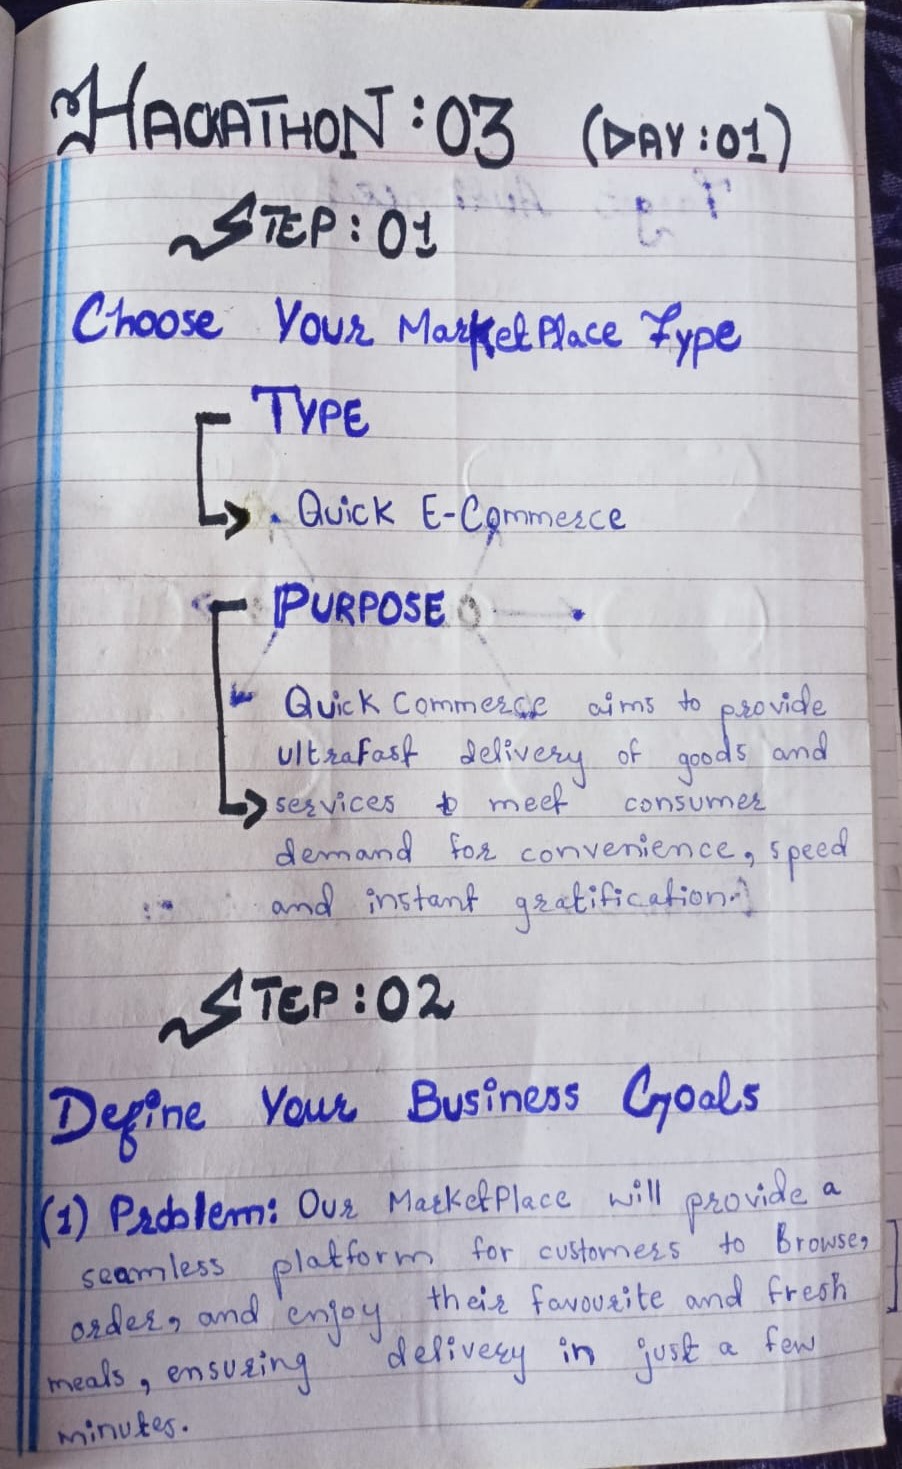 HACKATHON:03 (DAY:01)
STEP:01
Choose Your MarketPlace Type
TYPE
• Quick E-Commerce
PURPOSE
Quick Commerce aims to provide
ultrafast delivery of goods and
services to meet consumer
demand for convenience, speed
and instant gratification.
STEP:02
Define Your Business Goals
(1) Problem: Our MarketPlace will provide a
seamless platform for customers to Browse,
order, and enjoy their favourite and fresh
meals, ensuring delivery in just a few
minutes.